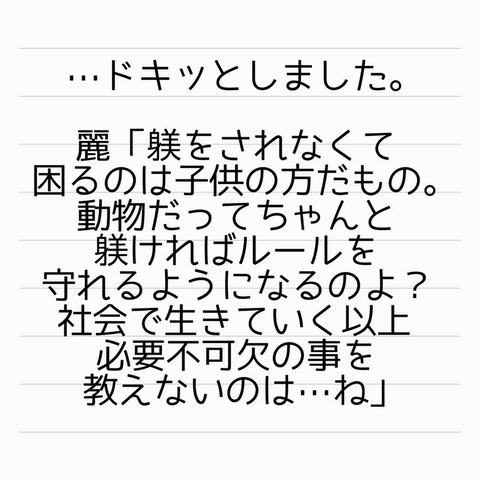 …ドキッとしました。
麗「躾をされなくて
困るのは子供の方だもの。
動物だってちゃんと
躾ければルールを
守れるようになるのよ？
社会で生きていく以上
必要不可欠の事を
教えないのは…ね」